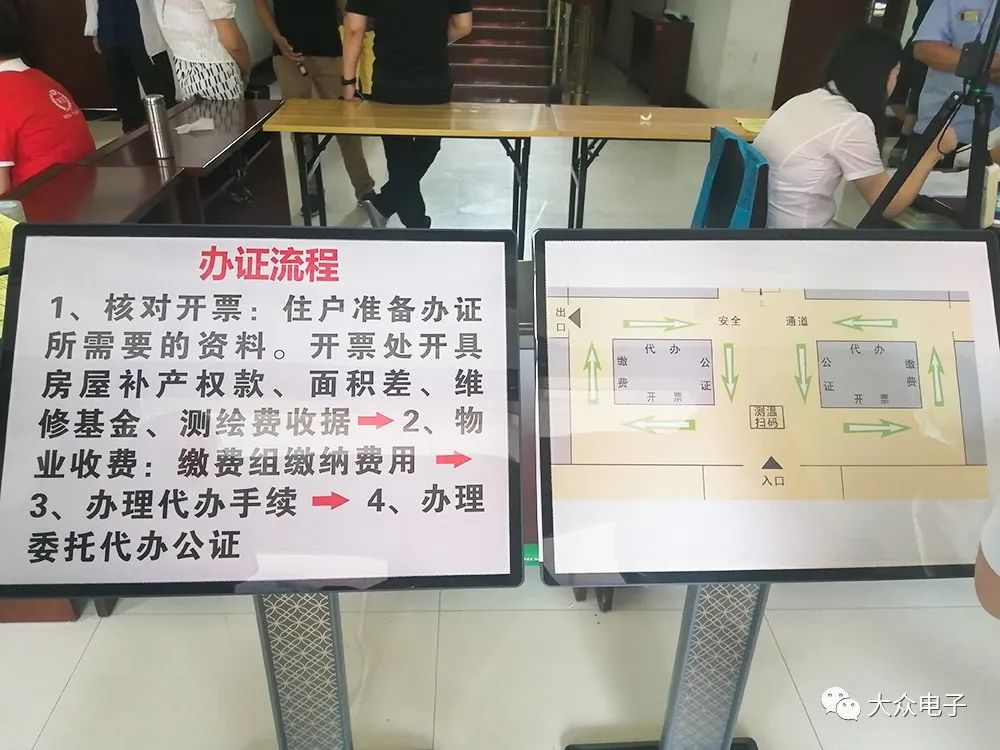 办证流程
1、核对开票：住户准备办证
所需要的资料。开票处开具
房屋补产权款、面积差、维
修基金、测绘费收据➡2、物
业收费：缴费组缴纳费用➡
3、办理代办手续➡4、办理
委托代办公证
出口
安全 通道
代办
缴费
公证
开票
代办
公证
缴费
开票
测温
扫码
入口
大众电子